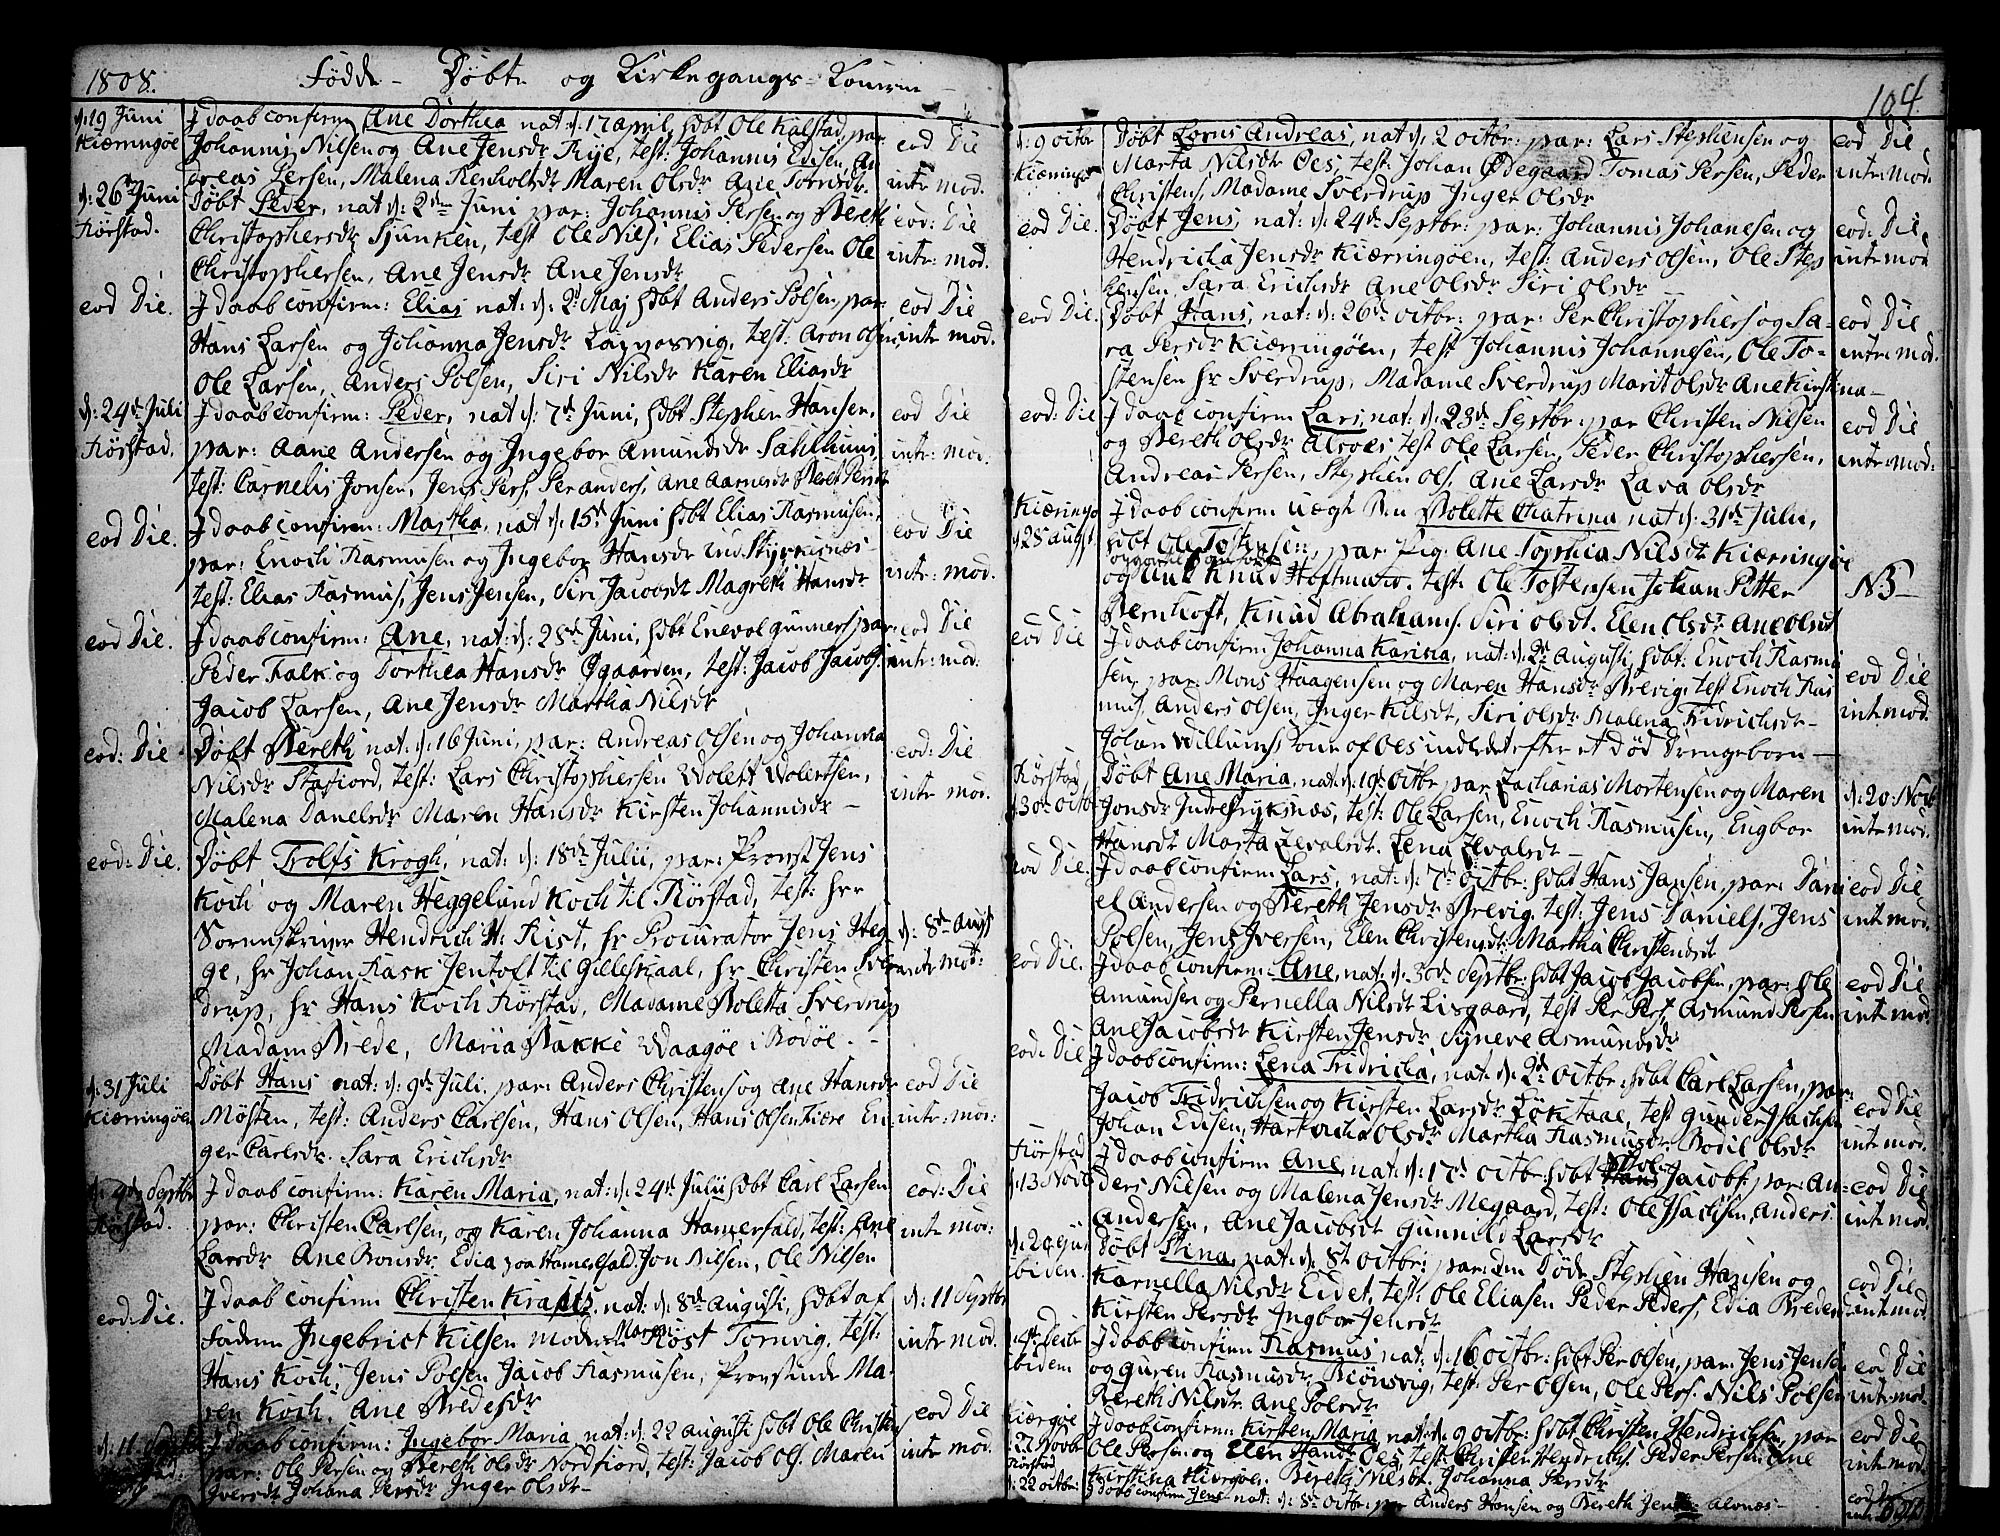 1808. Fødde - Døbte og Kirkegangs-Konerne -
d: 19 Juni Kierringøe
J daab confirm Ane Dorthea nat d: 17 april, hdbt Ole Kalstad, par:
Johannis Nilsen og Ane Jensdr test: Johannis Edisen, An
dreas Persen, Malena Renholtsdr Maren Olsdr Ane Torrisdr
eod Die intr: mod.
d: 26 Juni Rørstad.
Døbt Peder, nat: d: 2den Juni par: Johannis Persen og Bereth
Christophersdr Sjunken, test Ole Nils, Elias Pedersen Ole
Christophersen, Ane Jensdr Ane Jensdr
eod: Die intr: mod.
eod Die.
J daab confirm: Elias nat: d: 2d Maj hdbt Anders Polsen, par
Hans Larsen og Johanna Jensdr test: Aron Olsen
Ole Larsen, Anders Polsen, Siri Nilsdr Karen Eliasdr
eod Die intr mod.
d: 24de Juli Rørstad.
J daab confirm: Peder, nat d: 7d Juni, hdbt Stephen Hansen,
par: Aane Andersen og Ingebor Amundsdr
test: Carnelis Jonsen, Jens Pers, Per Anders, Ane Aarnesdr Beret Persdr
eod Die intr: mod.
eod Die.
J daab confirm: Martha, nat d: 15d Juni hdbt Elias Rasmusen,
par: Enoch Rasmusen og Ingebor Hansdr
test: Elias Rasmus, Jens Jensen, Siri Jacobsdr Magreth Hansdr
eod Die intr: mod.
eod Die.
J daab confirm: Ane, nat: d: 28d Juni, hdbt Enevol Gunners par:
Peder Falk og Dorthea Hansdr Øgaarden, test: Jacob Jacobs.
Jacob Larsen, Ane Jensdr Martha Nilsdr
eod Die intr: mod:
eod: Die
Døbt Bereth nat: d: 16 Juni, par: Andreas Olsen og Johanna
Nilsdr Stafiord, test: Lars Christophersen
Malena Danelsdr Maren Hansdr Kirsten Johannisdr -
eod: Die intr mod.
eod: Die.
Døbt Trolfs Krogh, nat: d: 18d Julii, par: Provst Jens
Koch og Maren Heggelund Koch til Rørstad, test: hrr
Sorenskriver Hendrich H: Rist, hr Procurator Jens Heg
ge, hr Johan Rask Jentoft til Gilleskaal, hr Christen Sver
drup, hr Hans Koch Rørstad, Madame Boletta Sverdrup
Madam Brede, Maria Bakke Waagøe i Bodøe. -
d: 8d Augs intr mod:
d: 31 Juli Kierringøen
Døbt Hans nat: d: 9d Juli. par: Anders Christens og Ane Hansdr
Møsten, test: Anders Carlsen, Hans Olsen, Hans Olsen Fiere En
ger Carlsdr. Sara Erichsdr
eod Die intr: mod:
d: 4de Septbr Rørstad.
J daab confirm: Karen Maria, nat: d: 24d Julii hdbt Carl Larsen
par: Christen Carlsen, og Karen Johanna Hamerfald, test: Ane
Larsdr Ane Bonsdr Edia paa Hamerfald. Jon Nilsen, Ole Nilsen
eod: Die intr mod.
eod: Die.
J daab confirm Christen nat: d: 8d augusti, hdbt af
faderen Ingebrict Kilsen moder Høst Tornvig, test:
Hans Koch, Jens Polsen Jacob Rasmusen, Provstinde Ma-
ren Koch. Ane Bredesdr
d: 11 Septbr intr mod.
d: 11 Septbr
J daab confirm: Ingebor Maria, nat: d: 22 augusti hdbt Ole Christen
par: Ole Persen og Bereth Olsdr Nordfiord, test: Jacob Ols. Maren
Iversdr Johana Persdr Inger Olsdr -
eod Die intr mod.
104.
d: 9 octbr Kierringøe
Døbt Andreas, nat d: 2 octbr: par: Lars Stephensen og
Marta Nilsdr Oes, test: Johan Ødegaard Tomas Persen, Peder
Christens, Madame Sverdrup Inger Olsdr
eod Die, intr: mod.
eod Die.
Døbt Jens, nat: d: 24d Septbr: par: Johannis Johanesen og
Hendricka Jensdr Kierringøen, test: Anders Olsen, Ole Step
hensen Sara Erichsdr Ane Olsdr Siri Olsdr -
eod: Die, intr mod
eod Die.
Døbt Hans, nat: d: 26d octbr: par: Per Christophers og Sa-
ra Persdr Kierringøen, test Johannis Johannesen, Ole To-
stensen hr Sverdrup, Madame Sverdrup Marit Olsdr Ane Kirstina -
eod Die intr: mod.
eod: Die
J daab confirm Lars, nat: d: 23d Septbr: par Christen Nilsen
og Bereth Olsdr test Ole Larsen, Peder Christophersen,
Andreas Persen, Stephen Ols, Ane Larsdr Lava Olsdr
eod Die intr: mod:
Kierringø d 28 augst.
J daab confirm uægt Bn Bolette Catrina, nat d: 31d Julii,
hdbt Ole Tostensen, par: Pig: Ane Sophia Nilsdr Kierringøe
og Knud Hoftmano. test: Ole Tostensen Johan Pitter
Bernhoft, Knud Abrahams. Siri Olsdt. Elen Olsdr Ane Olsdt
NB
eod Die
J daab confirm Johanna Karina, nat: d: 2d Augusti, hdbt: Enoch Rasmu
sen, par: Mons Haagensen og Maren Hansdr Brevig, test Enoch Ras
mus. Anders Olsen, Inger Kilsdt, Siri Olsdr Malena Fridrichsdt -
Johan Willums Kone af Oes indledt efter et død Drengeborn -
eod Die int: mod.
Rørstad d 30d octbr
Døbt Ane Maria, nat: d: 19d octbr par Zacharias Mortensen og Maren
Jonsdr test: Ole Larsen, Enoch Rasmusen, Engbor
Hansdt Marta Lena
d: 20 Novb int mod.
eod Die.
J daab confirm Lars, nat: d: 7d octbr: hdbt Hans Jansen, par: Dani
el Andersen og Bereth Jensdr Brevig, test: Jens Daniels, Jens
Polsen, Jens Iversen, Elen Christensdt. Martha Christensdt
eod Die int mod.
eod Die.
J daab confirm: Ane, nat: d: 30d Septbr: hdbt Jacob Jacobsen, par: Ole
Amundsen og Pernella Nilsdt test Per Pers, Asmund Persen
Ane Jacobsdt Kirsten Jensdr Synere Asmundsdr
eod Die int: mod.
eod: Die
J daab confirm: Lena Fridricka, nat: d: 2d octbr: hdbt Carl Larsen, par:
Jacob Fridrichsen og Kirsten Larsdr test Gunder
Johan Edisen, Olsdr Martha Rasmusdr Bodil Olsdr
eod Die int mod.
Rørstad d: 13 Novb
J daab confirm Ane, nat: d: 17d octbr: hdbt Jacobs: par: An-
ders Nilsen og Malena Jensdr Megaard, test: Ole Isachsen, Anders
Andersen, Ane Jacobsdt Gunnild Larsdr
eod Die int mod.
d: 20 ibiden.
Døbt Stina, nat: d: 8d octbr: par: den Døde Stephen Hansen og
Karnella Nilsdr Eidet, test: Ole Eliasen Peder Peders, Edia Bredes
Kirsten Persdt Ingbor Jensdr
eod Die int: mod.
ibidem
J daab confirm Rasmus nat: d: 16 octbr: hdbt Per Olsen, par: Jens Jensen
og Guren Rasmusdr test: Per Olsen, Ole Pers. Nils Pølsen
Bereth Nilsdr Ane Polsdr
eod Die int: mod.
Kiergøe 27 Novbr
J daab confirm: Kirsten Maria nat: d: 9 octbr: hdbt Christen Hendrichsen, par
Ole Persen og Elen Hansdt Oes, test: Christen Hendrichs, Peder Persen Ane
Kirstina Kiergøe, Bereth Nilsdt. Johanna Persdr
eod Die int mod.
Rørstad d: 22 octbr:
J daab confirm Jens nat: d: 8d octbr: par Anders Hansen og Bereth Alvnæs -